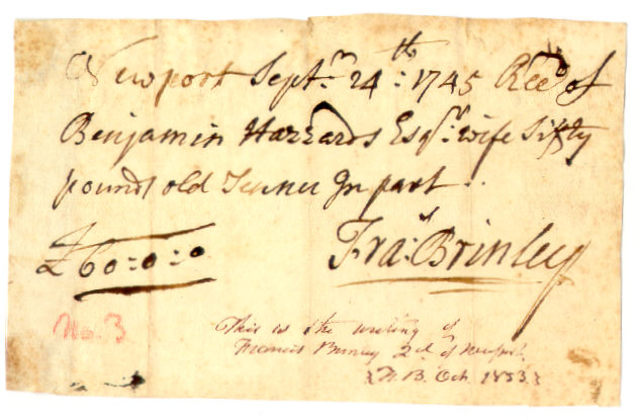 Newport Septm: 24th: 1745 Recd of
Benjamin Hazzards Esqr: wife Sixty
pounds old Tenner In part.
£60:0:0 Fras: Brinley
No. 3
This is the writing of
Francis Brinley 2d of Newport
N. B. Oct. 1853.